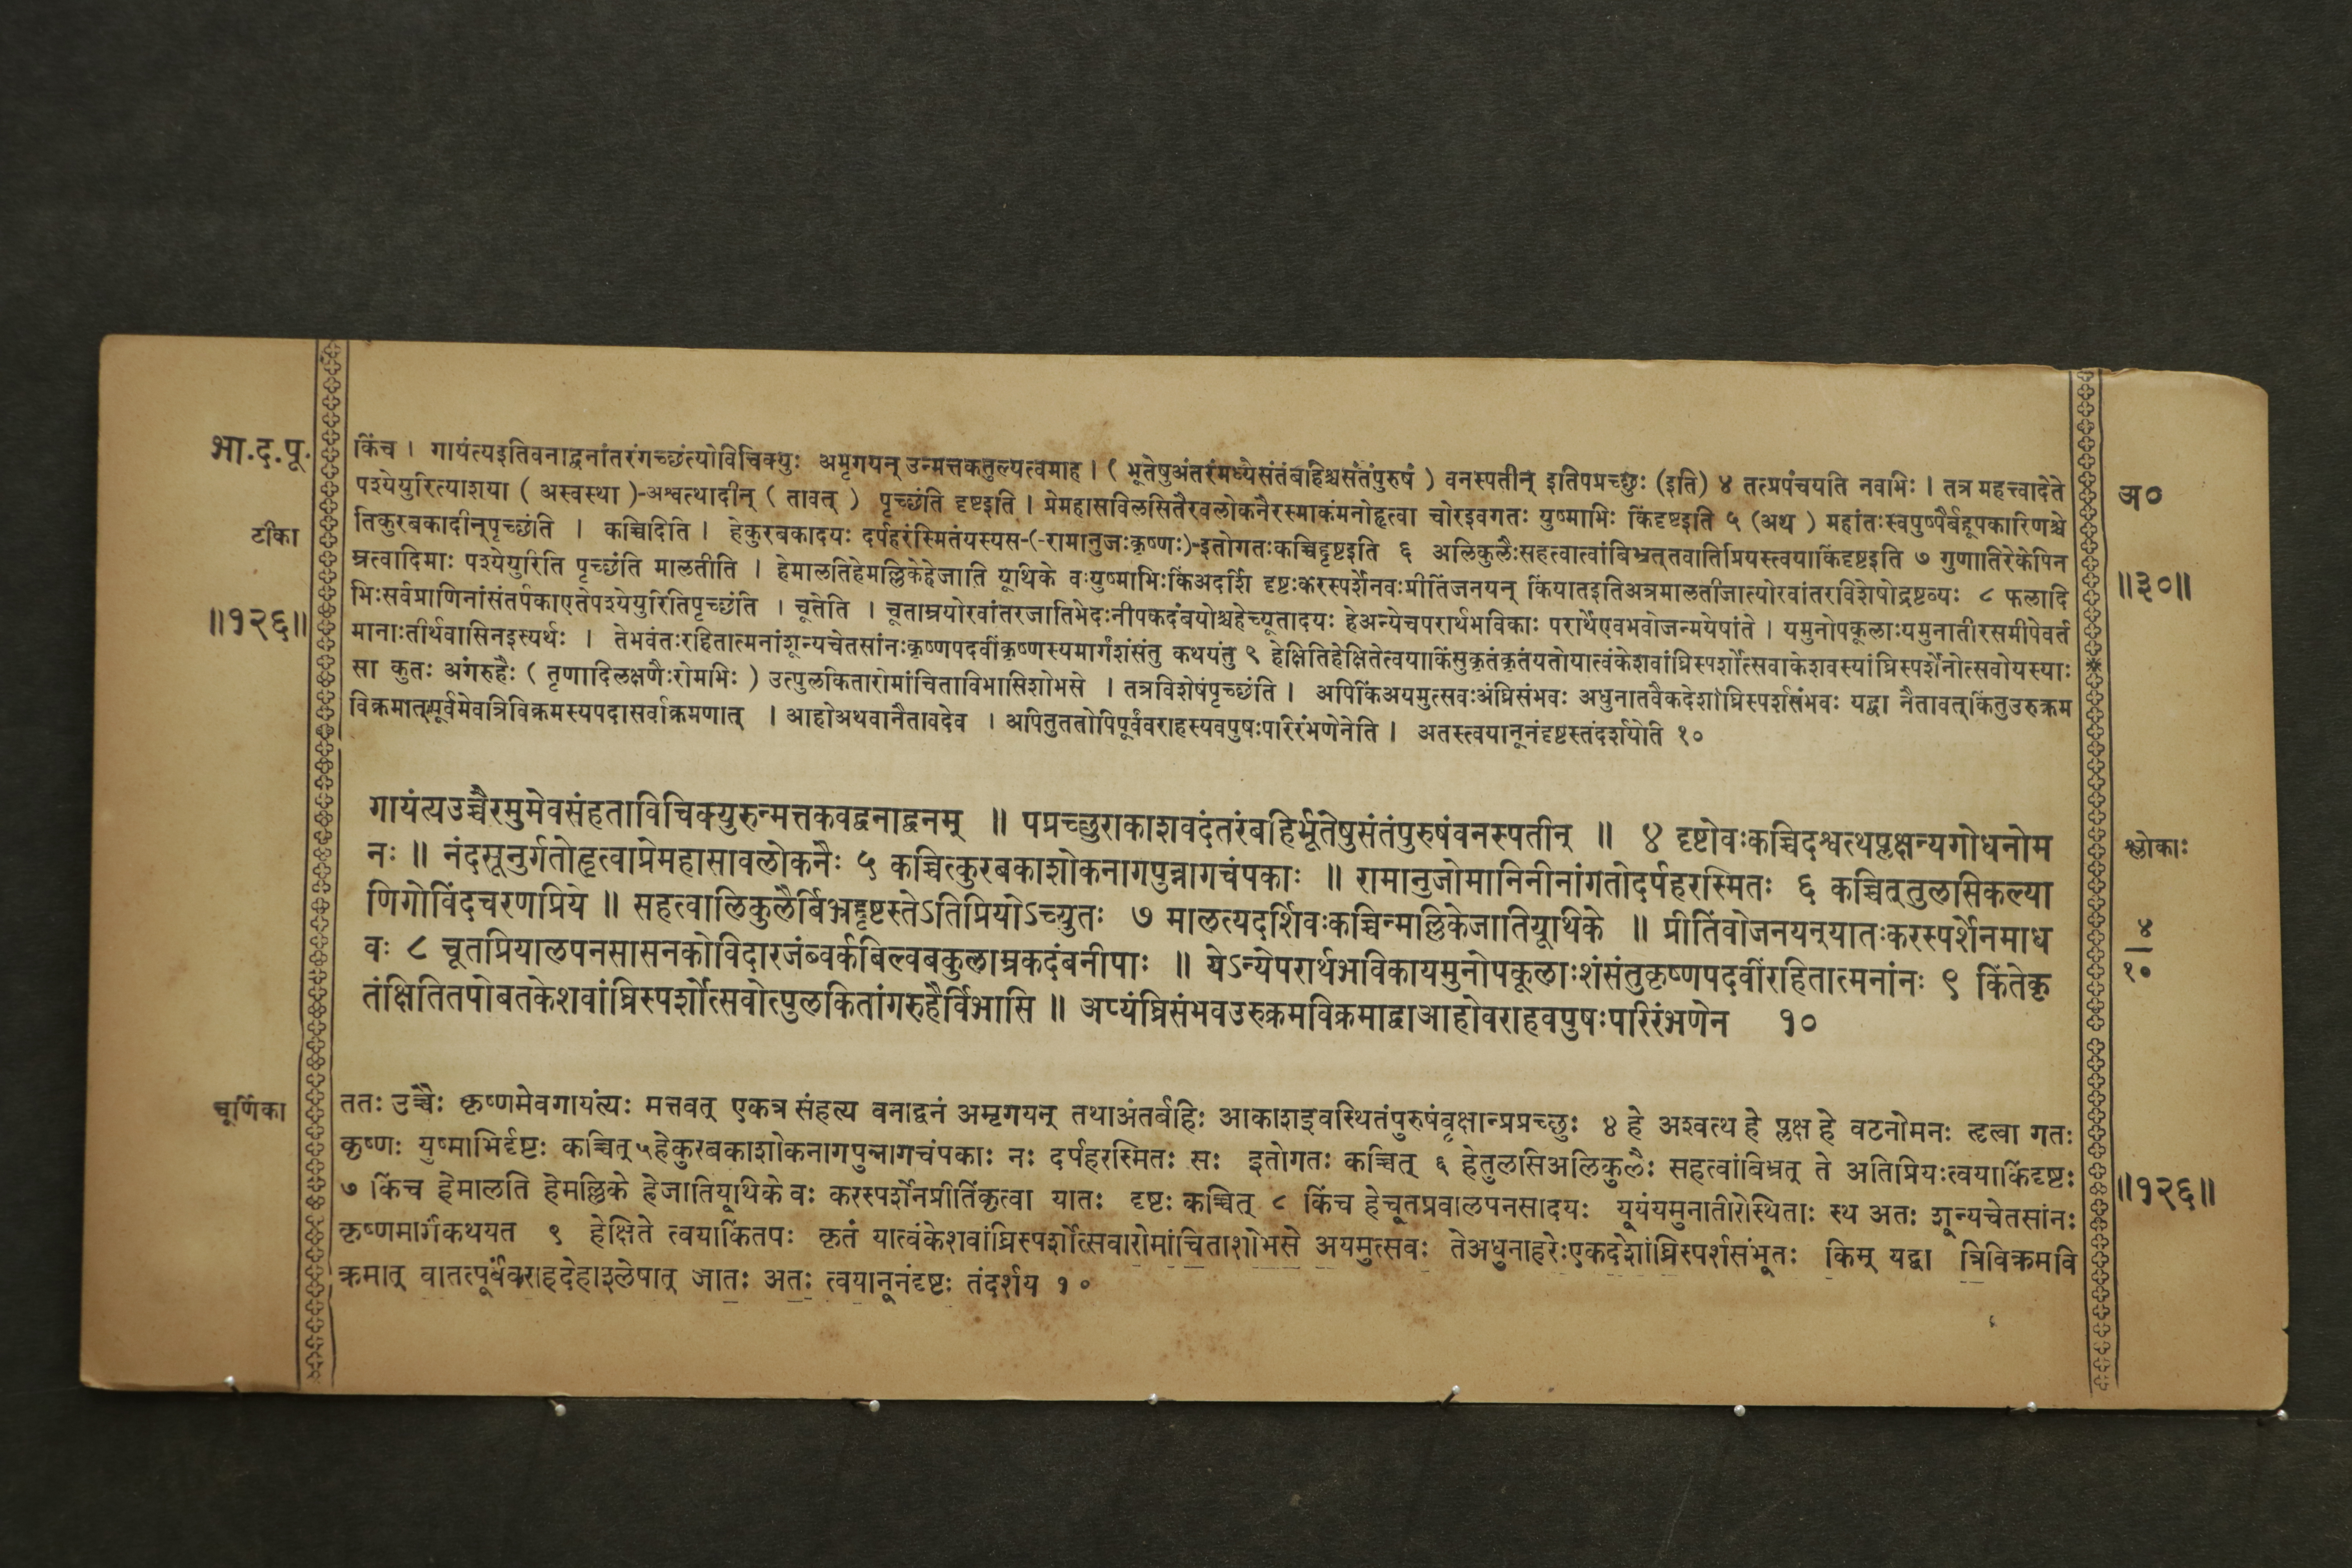 भा.द.पू.
टीका
॥१२६॥
किंच । गायंत्यइतिवनाद्वनांतरंगच्छंत्योविचिक्युः अमृगयन् उन्मत्तकतुल्यत्वमाह । ( भूतेषुअंतरंमध्येसंतंबहिश्चसंतंपुरुषं ) वनस्पतीन् इतिपप्रच्छुः (इति) ४ तत्प्रपंचयति नवभिः । तत्र महत्त्वादेते
पश्येयुरित्याशया ( अस्वस्था )-अश्वत्थादीन् ( तावत् ) पृच्छंति दृष्टइति । प्रेमहासविलसितैरवलोकनैरस्माकंमनोहृत्वा चोरइवगतः युष्माभिः किंदृष्टइति ५ (अथ ) महांतःस्वपुष्पैर्बहूपकारिणश्चे
तिकुरबकादीन्पृच्छंति । कच्चिदिति । हेकुरबकादयः दर्पहरंस्मितंयस्यस-(-रामानुजःकृष्णः)-इतोगतःकच्चिद्दृष्टइति ६ अलिकुलैःसहत्वात्वांबिभ्रत्तवातिप्रियस्त्वयाकिंदृष्टइति ७ गुणातिरेकेपिन
म्रत्वादिमाः पश्येयुरिति पृच्छंति मालतीति । हेमालतिहेमल्लिकेहेजाति यूथिके वःयुष्माभिःकिंअदर्शि दृष्टःकरस्पर्शेनवःप्रीतिंजनयन् किंयातइतिअत्रमालतीजात्योरवांतरविशेषोद्रष्टव्यः ८ फलादि
भिःसर्वप्राणिनांसंतर्पकाएतेपश्येयुरितिपृच्छंति । चूतेति । चूताम्रयोरवांतरजातिभेदःनीपकदंबयोश्चहेच्यूतादयः हेअन्येचपरार्थभविकाः परार्थेएवभवोजन्मयेषांते । यमुनोपकूलाःयमुनातीरसमीपेवर्त
मानाःतीर्थवासिनइत्यर्थः । तेभवंतःरहितात्मनांशून्यचेतसांनःकृष्णपदवींकृष्णस्यमार्गंशंसंतु कथयंतु ९ हेक्षितिहेक्षितेत्वयाकिंसुकृतंकृतंयतोयात्वंकेशवांघ्रिस्पर्शोत्सवाकेशवस्यांघ्रिस्पर्शेनोत्सवोयस्याः
सा कुतः अंगरुहैः ( तृणादिलक्षणैःरोमभिः ) उत्पुलकितारोमांचिताविभासिशोभसे । तत्रविशेषंपृच्छंति । अपिकिंअयमुत्सवःअंघ्रिसंभवः अधुनातवैकदेशांघ्रिस्पर्शसंभवः यद्वा नैतावत्।किंतुउरुक्रम
विक्रमात्पूर्वमेवत्रिविक्रमस्यपदासर्वाक्रमणात् । आहोअथवानैतावदेव । अपितुततोपिपूर्वंवराहस्यवपुषःपरिरंभणेनेति । अतस्त्वयानूनंदृष्टस्तंदर्शयेति १०
अ०
॥३०॥
गायंत्यउच्चैरमुमेवसंहताविचिक्युरुन्मत्तकवद्वनाद्वनम् ॥ पप्रच्छुराकाशवदंतरंबहिर्भूतेषुसंतंपुरुषंवनस्पतीन् ॥ ४ दृष्टोवःकच्चिदश्वत्थप्लक्षन्यग्रोधनोम
नः ॥ नंदसूनुर्गतोहृत्वाप्रेमहासावलोकनैः ५ कच्चित्कुरबकाशोकनागपुन्नागचंपकाः ॥ रामानुजोमानिनीनांगतोदर्पहरस्मितः ६ कच्चित्तुलसिकल्या
णिगोविंदचरणप्रिये ॥ सहत्वालिकुलैर्बिभ्रद्दृष्टस्तेऽतिप्रियोऽच्युतः ७ मालत्यदर्शिवःकच्चिन्मल्लिकेजातियूथिके ॥ प्रीतिंवोजनयन्यातःकरस्पर्शेनमाध
वः ८ चूतप्रियालपनसासनकोविदारजंब्वर्कबिल्वबकुलाम्रकदंबनीपाः ॥ येऽन्येपरार्थभविकायमुनोपकूलाःशंसंतुकृष्णपदवींरहितात्मनांनः ९ किंतेकृ
तंक्षितितपोबतकेशवांघ्रिस्पर्शोत्सवोत्पुलकितांगरुहैर्विभासि ॥ अप्यंघ्रिसंभवउरुक्रमविक्रमाद्वाआहोवराहवपुषःपरिरंभणेन १०
श्लोकाः
४
१०
चूर्णिका
ततः उच्चैः कृष्णमेवगायंत्यः मत्तवत् एकत्र संहत्य वनाद्वनं अमृगयन् तथाअंतर्बहिः आकाशइवस्थितंपुरुषंवृक्षान्प्रप्रच्छुः ४ हे अश्वत्थ हे प्लक्ष हे वटनोमनः हृत्वा गतः
कृष्णः युष्माभिर्दृष्टः कच्चित् ५हेकुरबकाशोकनागपुन्नागचंपकाः नः दर्पहरस्मितः सः इतोगतः कच्चित् ६ हेतुलसिअलिकुलैः सहत्वांबिभ्रत् ते अतिप्रियःत्वयाकिंदृष्टः
७ किंच हेमालति हेमल्लिके हेजातियूथिके वः करस्पर्शेनप्रीतिंकृत्वा यातः दृष्टः कच्चित् ८ किंच हेचूतप्रवालपनसादयः यूयंयमुनातीरेस्थिताः स्थ अतः शून्यचेतसांनः
कृष्णमार्गंकथयत ९ हेक्षिते त्वयाकिंतपः कृतं यात्वंकेशवांघ्रिस्पर्शोत्सवारोमांचिताशोभसे अयमुत्सवः तेअधुनाहरेःएकदेशांघ्रिस्पर्शसंभूतः किम् यद्वा त्रिविक्रमवि
क्रमात् वातत्पूर्वंवराहदेहाश्लेषात् जातः अतः त्वयानूनंदृष्टः तंदर्शय १०
॥१२६॥